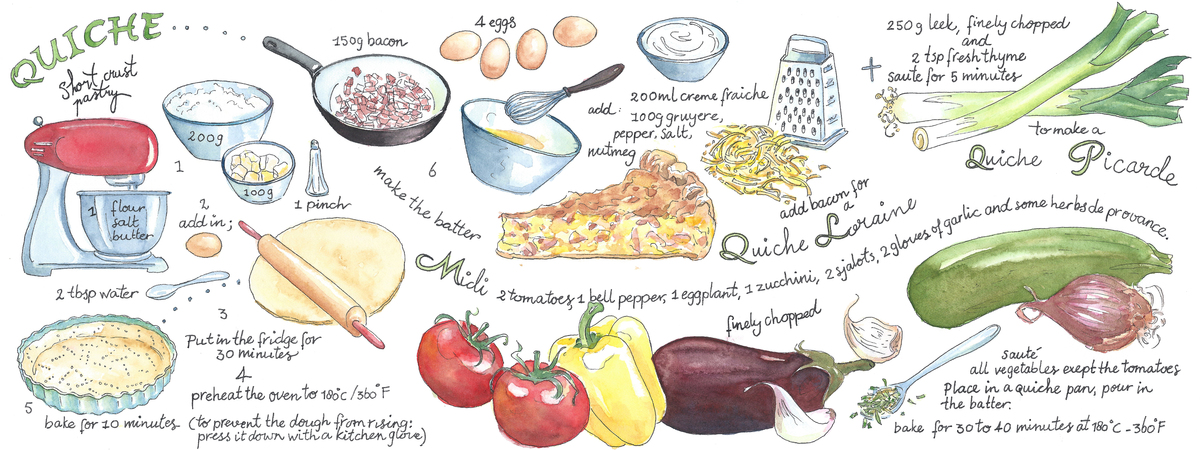 QUICHE
Short crust
pastry
200g
1
100g
1 pinch
1 flour
salt
butter
2
add in;
2 tbsp water
3
Put in the fridge for
30 minutes
4
preheat the oven to 180°c/360°F
5
bake for 10 minutes (to prevent the dough from rising:
press it down with a kitchen glove)
150g bacon
4 eggs
6
make the batter
add:
200ml creme fraiche
100g gruyere,
pepper, salt,
nutmeg
add bacon for
a
Quiche Loraine
+
250g leek, finely chopped
and
2 tsp fresh thyme
sauté for 5 minutes
to make a
Quiche Picarde
Midi 2 tomatoes, 1 bell pepper, 1 eggplant, 1 zucchini, 2 sjalots, 2 gloves of garlic and some herbs de provance.
finely chopped
sauté
all vegetables exept the tomatoes
Place in a quiche pan, pour in
the batter.
bake for 30 to 40 minutes at 180°C - 360°F